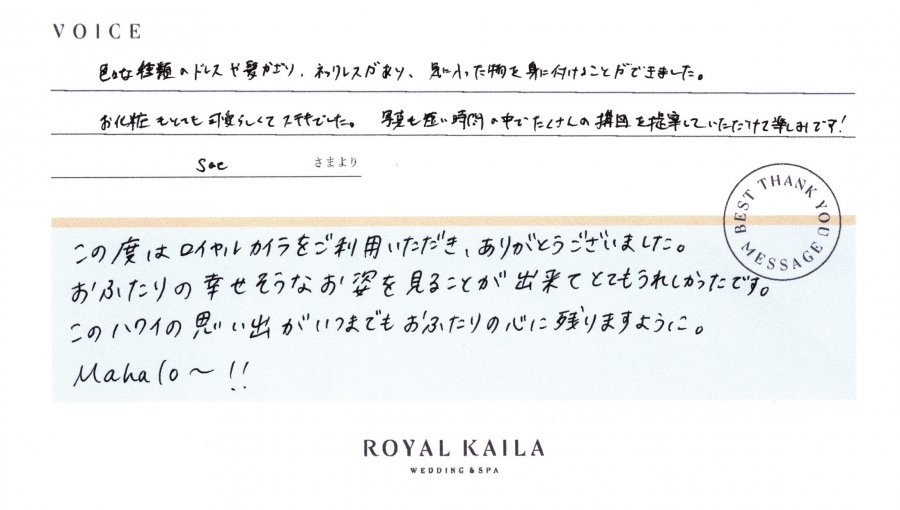 VOICE
色々な種類のドレスや髪かざり、ネックレスがあり、気に入った物を身に付けることができました。
お化粧もとても可愛らしくてステキでした。 写真も短い時間の中でたくさんの構図を提案していただけて楽しみです!
Sae さまより
BEST THANK YOU MESSAGE
この度はロイヤルカイラをご利用いただき、ありがとうございました。
おふたりの幸せそうなお姿を見ることが出来てとてもうれしかったです。
このハワイの思い出がいつまでもおふたりの心に残りますように。
Mahalo〜!!
ROYAL KAILA
WEDDING & SPA